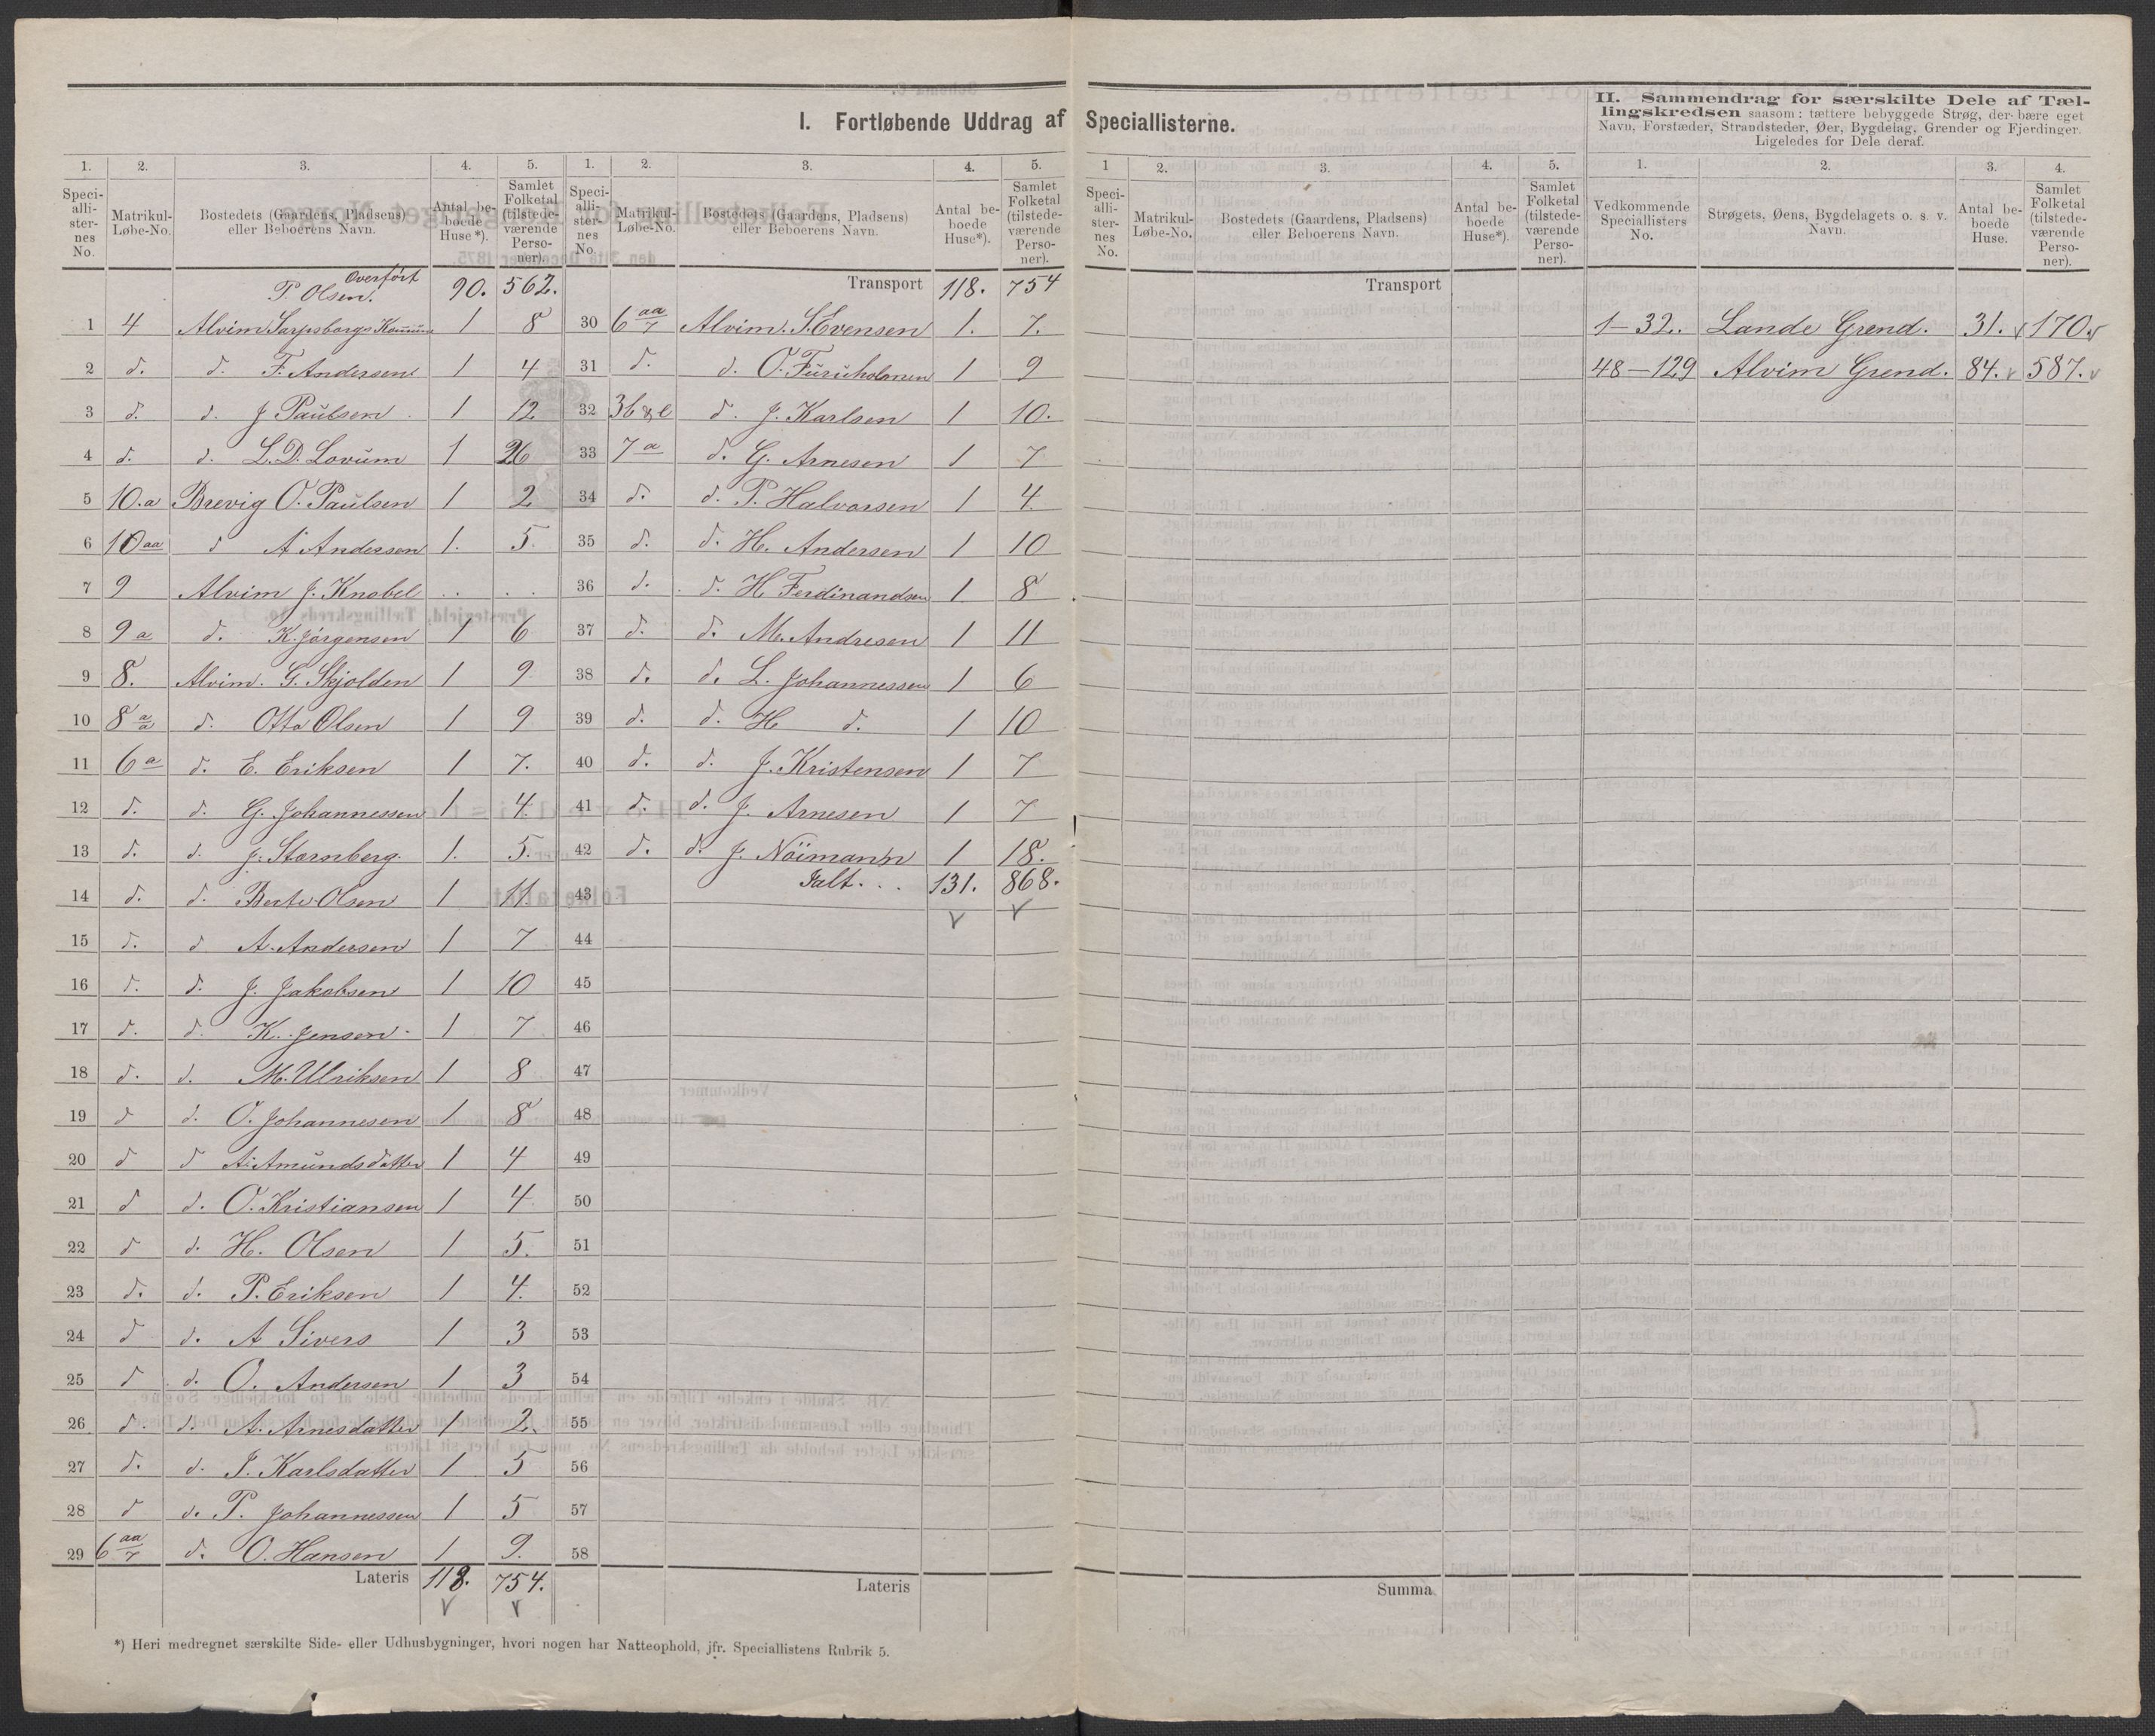 I. Fortløbende Uddrag af Speciallisterne.
II. Sammendrag for særskilte Dele af Tæl-
lingskredsen saasom: tættere bebyggede Strøg, der bære eget
Navn, Forstæder, Strandsteder, Øer, Bygdelag, Grender og Fjerdinger.
Ligeledes for Dele deraf.
1. 2. 3. 4. 5. 1. 2. 3. 4. 5. 1 2. 3. 4. 5. 1. 2. 3. 4.
Speci-alli-ster-nes No. Matrikul-Løbe-No. Bostedets (Gaardens, Pladsens) eller Beboerens Navn. Antal be-boede Huse*). Samlet Folketal (tilstede-værende Perso-ner).
Speci-alli-ster-nes No. Matrikul-Løbe-No. Bostedets (Gaardens, Pladsens) eller Beboerens Navn. Antal be-boede Huse*). Samlet Folketal (tilstede-værende Perso-ner).
Speci-alli-ster-nes No. Matrikul-Løbe-No. Bostedets (Gaardens, Pladsens) eller Beboerens Navn. Antal be-boede Huse*). Samlet Folketal (tilstede-værende Perso-ner).
Vedkommende Speciallisters No. Strøgets, Øens, Bygdelagets o. s. v. Navn. Antal be-boede Huse. Samlet Folketal (tilstede-værende Perso-ner).
Overført
P. Olsen. 90. 562.
1 4 Alvim Sarpsborgs Komune 1 8
2 d. d. F. Andersen 1 4
3 d. d. J Paulsen 1 12
4 d. d. L.D. Lovum 1 26
5 10.a Brevig O. Paulsen 1 2
6 10 aa d A Andersen 1. 5.
7 9 Alvim J. Knobel . . .
8 9 a d. K. Jørgensen 1 6
9 8. Alvim. G. Skjolden 1 9
10 8 a/a d. Otto Olsen 1 9
11 6 a d. E. Eriksen 1 7.
12 d. d. G. Johannessen 1 4.
13 d. d. J. Stornberg. 1. 5.
14 d. d. Berte Olsen 1 11.
15 d. d A. Andersen 1 7
16 d. d. J. Jakobsen 1 10
17 d. d. K. Jensen 1 7
18 d. d. M. Ulriksen 1 8
19 d d. O. Johannesen 1 8
20 d d A. Amundsdatter 1 4
21 d d. O. Kristiansen 1 4
22 d d. H. Olsen 1 5.
23 d. d. P. Eriksen 1 4.
24 d d. A Sivers 1 3
25 d d. O. Andersen 1 3
26 d. d. A. Arnesdatter 1 2.
27 d. d. J. Karlsdatter 1 5
28 d d. P. Johannessen 1 5
29 6 aa/7 d. O. Hansen 1 9.
Lateris 118. 754.
Transport 118. 754
30 6 aa/7 Alvim. S. Evensen 1. 7.
31 d. d. O. Furuholmen 1 9
32 36 & e d. J. Karlsen 1 10.
33 7 a d. G. Arnesen 1 7
34 d. d. P. Halvorsen 1 4.
35 d. d. H. Andersen 1 10
36 d. d. H Ferdinandsen 1 8
37 d. d. M. Andresen 1 11
38 d. d. L. Johannessen 1 6
39 d. d. H d. 1 10
40 d. d. J. Kristensen 1 7
41 d. d. J. Arnesen 1 7
42 d. d. J. Nöimann 1 18.
43 Ialt. . . 131. 868.
44
45
46
47
48
49
50
51
52
53
54
55
56
57
58
Lateris
Transport
Summa
1–32. Lande Grend. 31. 170.
48–129 Alvim Grend. 84. 587.
*) Heri medregnet særskilte Side- eller Udhusbygninger, hvori nogen har Natteophold, jfr. Speciallistens Rubrik 5.